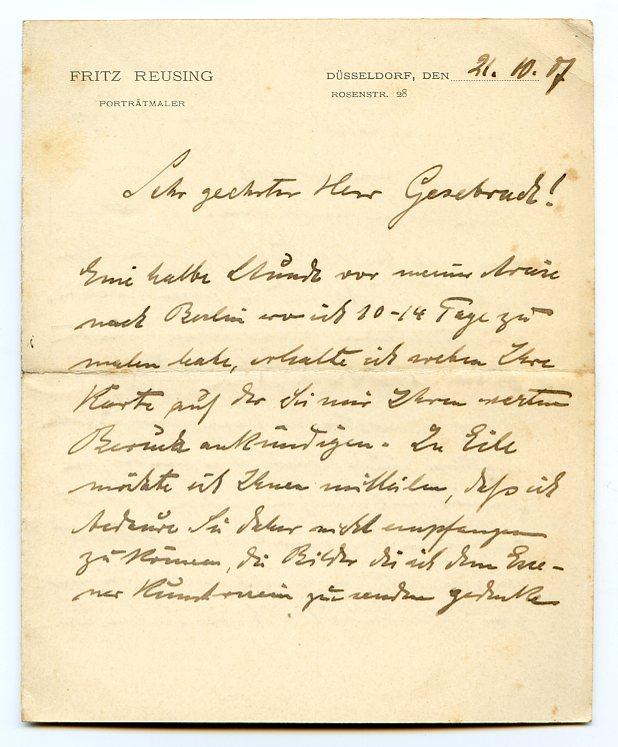 FRITZ REUSING
PORTRÄTMALER
DÜSSELDORF, DEN 21. 10. 07
ROSENSTR. 28
Sehr geehrter Herr Gesebruch!
Eine halbe Stunde vor meiner Abreise
nach Berlin wo ich 10-14 Tage zu
malen habe, erhalte ich soeben Ihre
Karte auf der Sie mir Ihren werten
Besuch ankündigen. In Eile
möchte ich Ihnen mitteilen, dass ich
bedaure Sie daher nicht empfangen
zu können, die Bilder die ich dem Esse-
ner Kunstverein zu senden gedenke